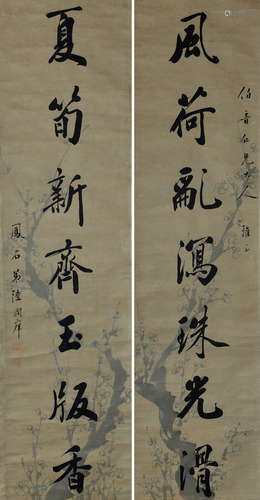 伯音仁兄大人 雅正
風荷亂瀉珠光滑
夏筍新齊玉版香
鳳石弟陸潤庠